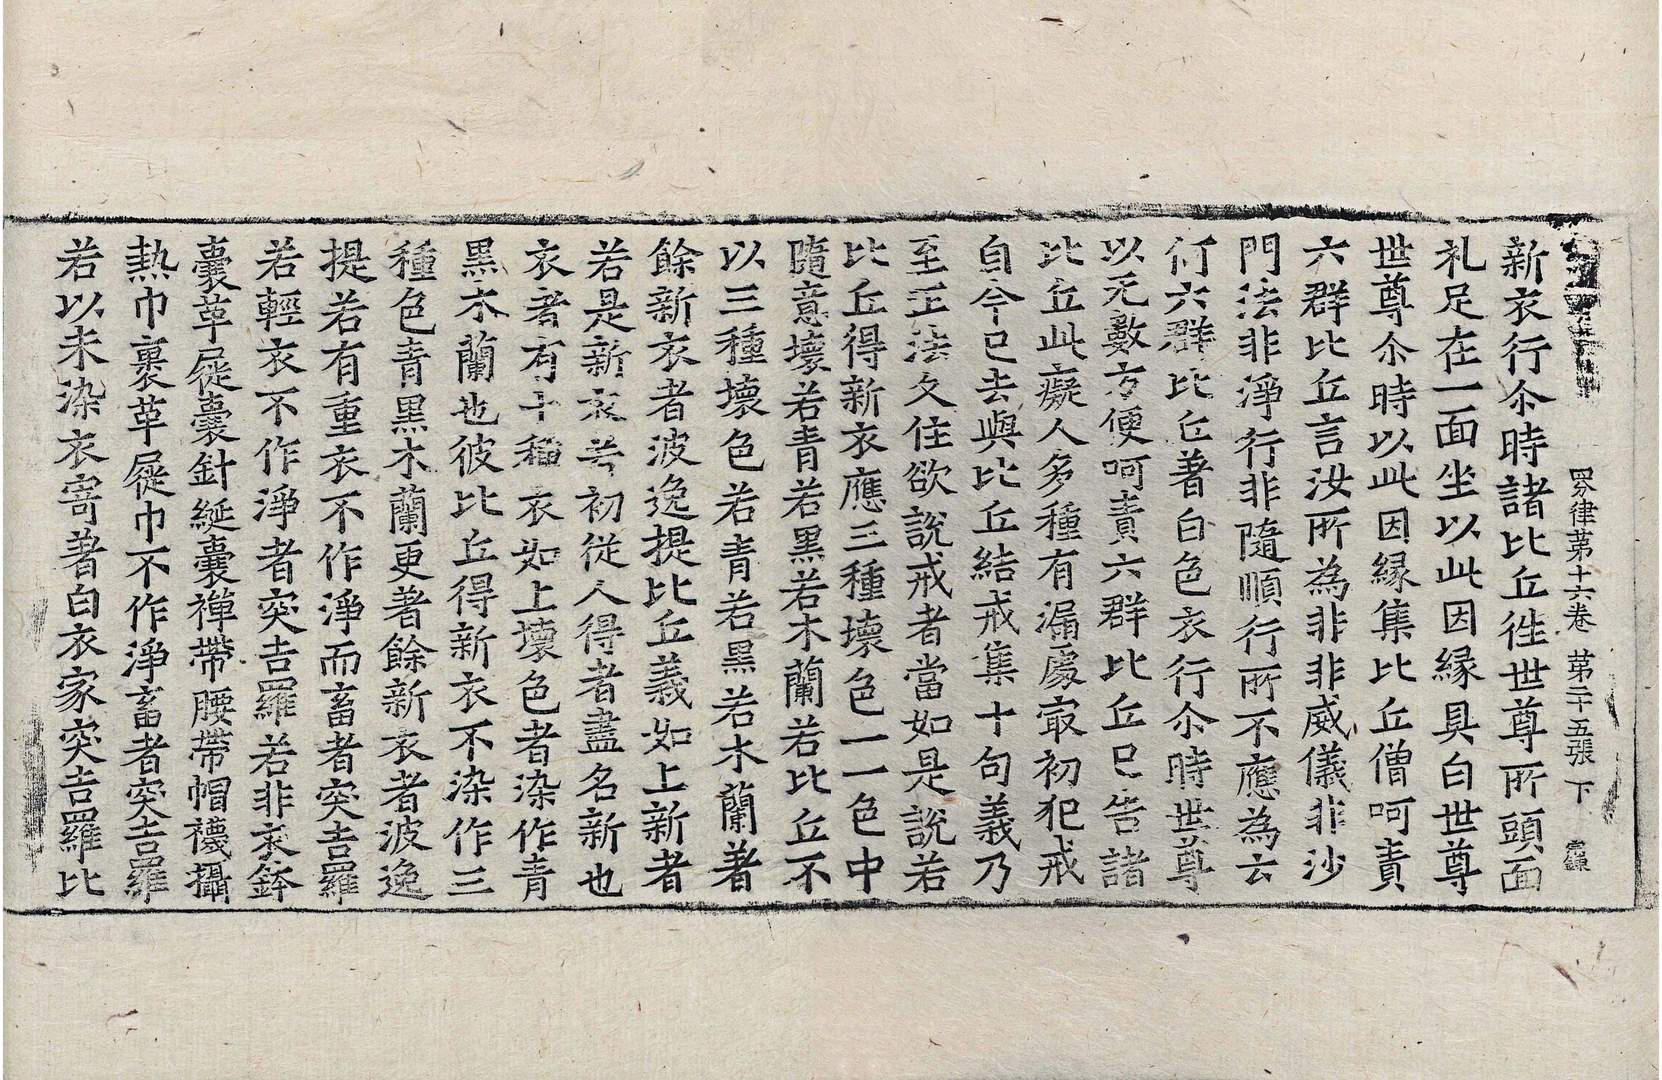 四分律第十六卷 第二十五張 下
新衣行尒時諸比丘往世尊所頭面
礼足在一面坐以此因緣具白世尊
世尊尒時以此因緣集比丘僧呵責
六群比丘言汝所為非非威儀非沙
門法非淨行非隨順行所不應為云
何六群比丘著白色衣行尒時世尊
以无數方便呵責六群比丘已告諸
比丘此癡人多種有漏處冣初犯戒
自今已去與比丘結戒集十句義乃
至正法久住欲說戒者當如是說若
比丘得新衣應三種壞色一一色中
隨意壞若青若黑若木蘭若比丘不
以三種壞色若青若黑若木蘭著
餘新衣者波逸提比丘義如上新者
若是新衣若初從人得者盡名新也
衣者有十種衣如上壞色者染作青
黑木蘭也彼比丘得新衣不染作三
種色青黑木蘭更著餘新衣者波逸
提若有重衣不作淨而畜者突吉羅
若輕衣不作淨者突吉羅若非衣鉢
囊革屣囊針綖囊禪帶腰帶帽襪攝
熱巾裹革屣巾不作淨畜者突吉羅
若以未染衣寄著白衣家突吉羅比